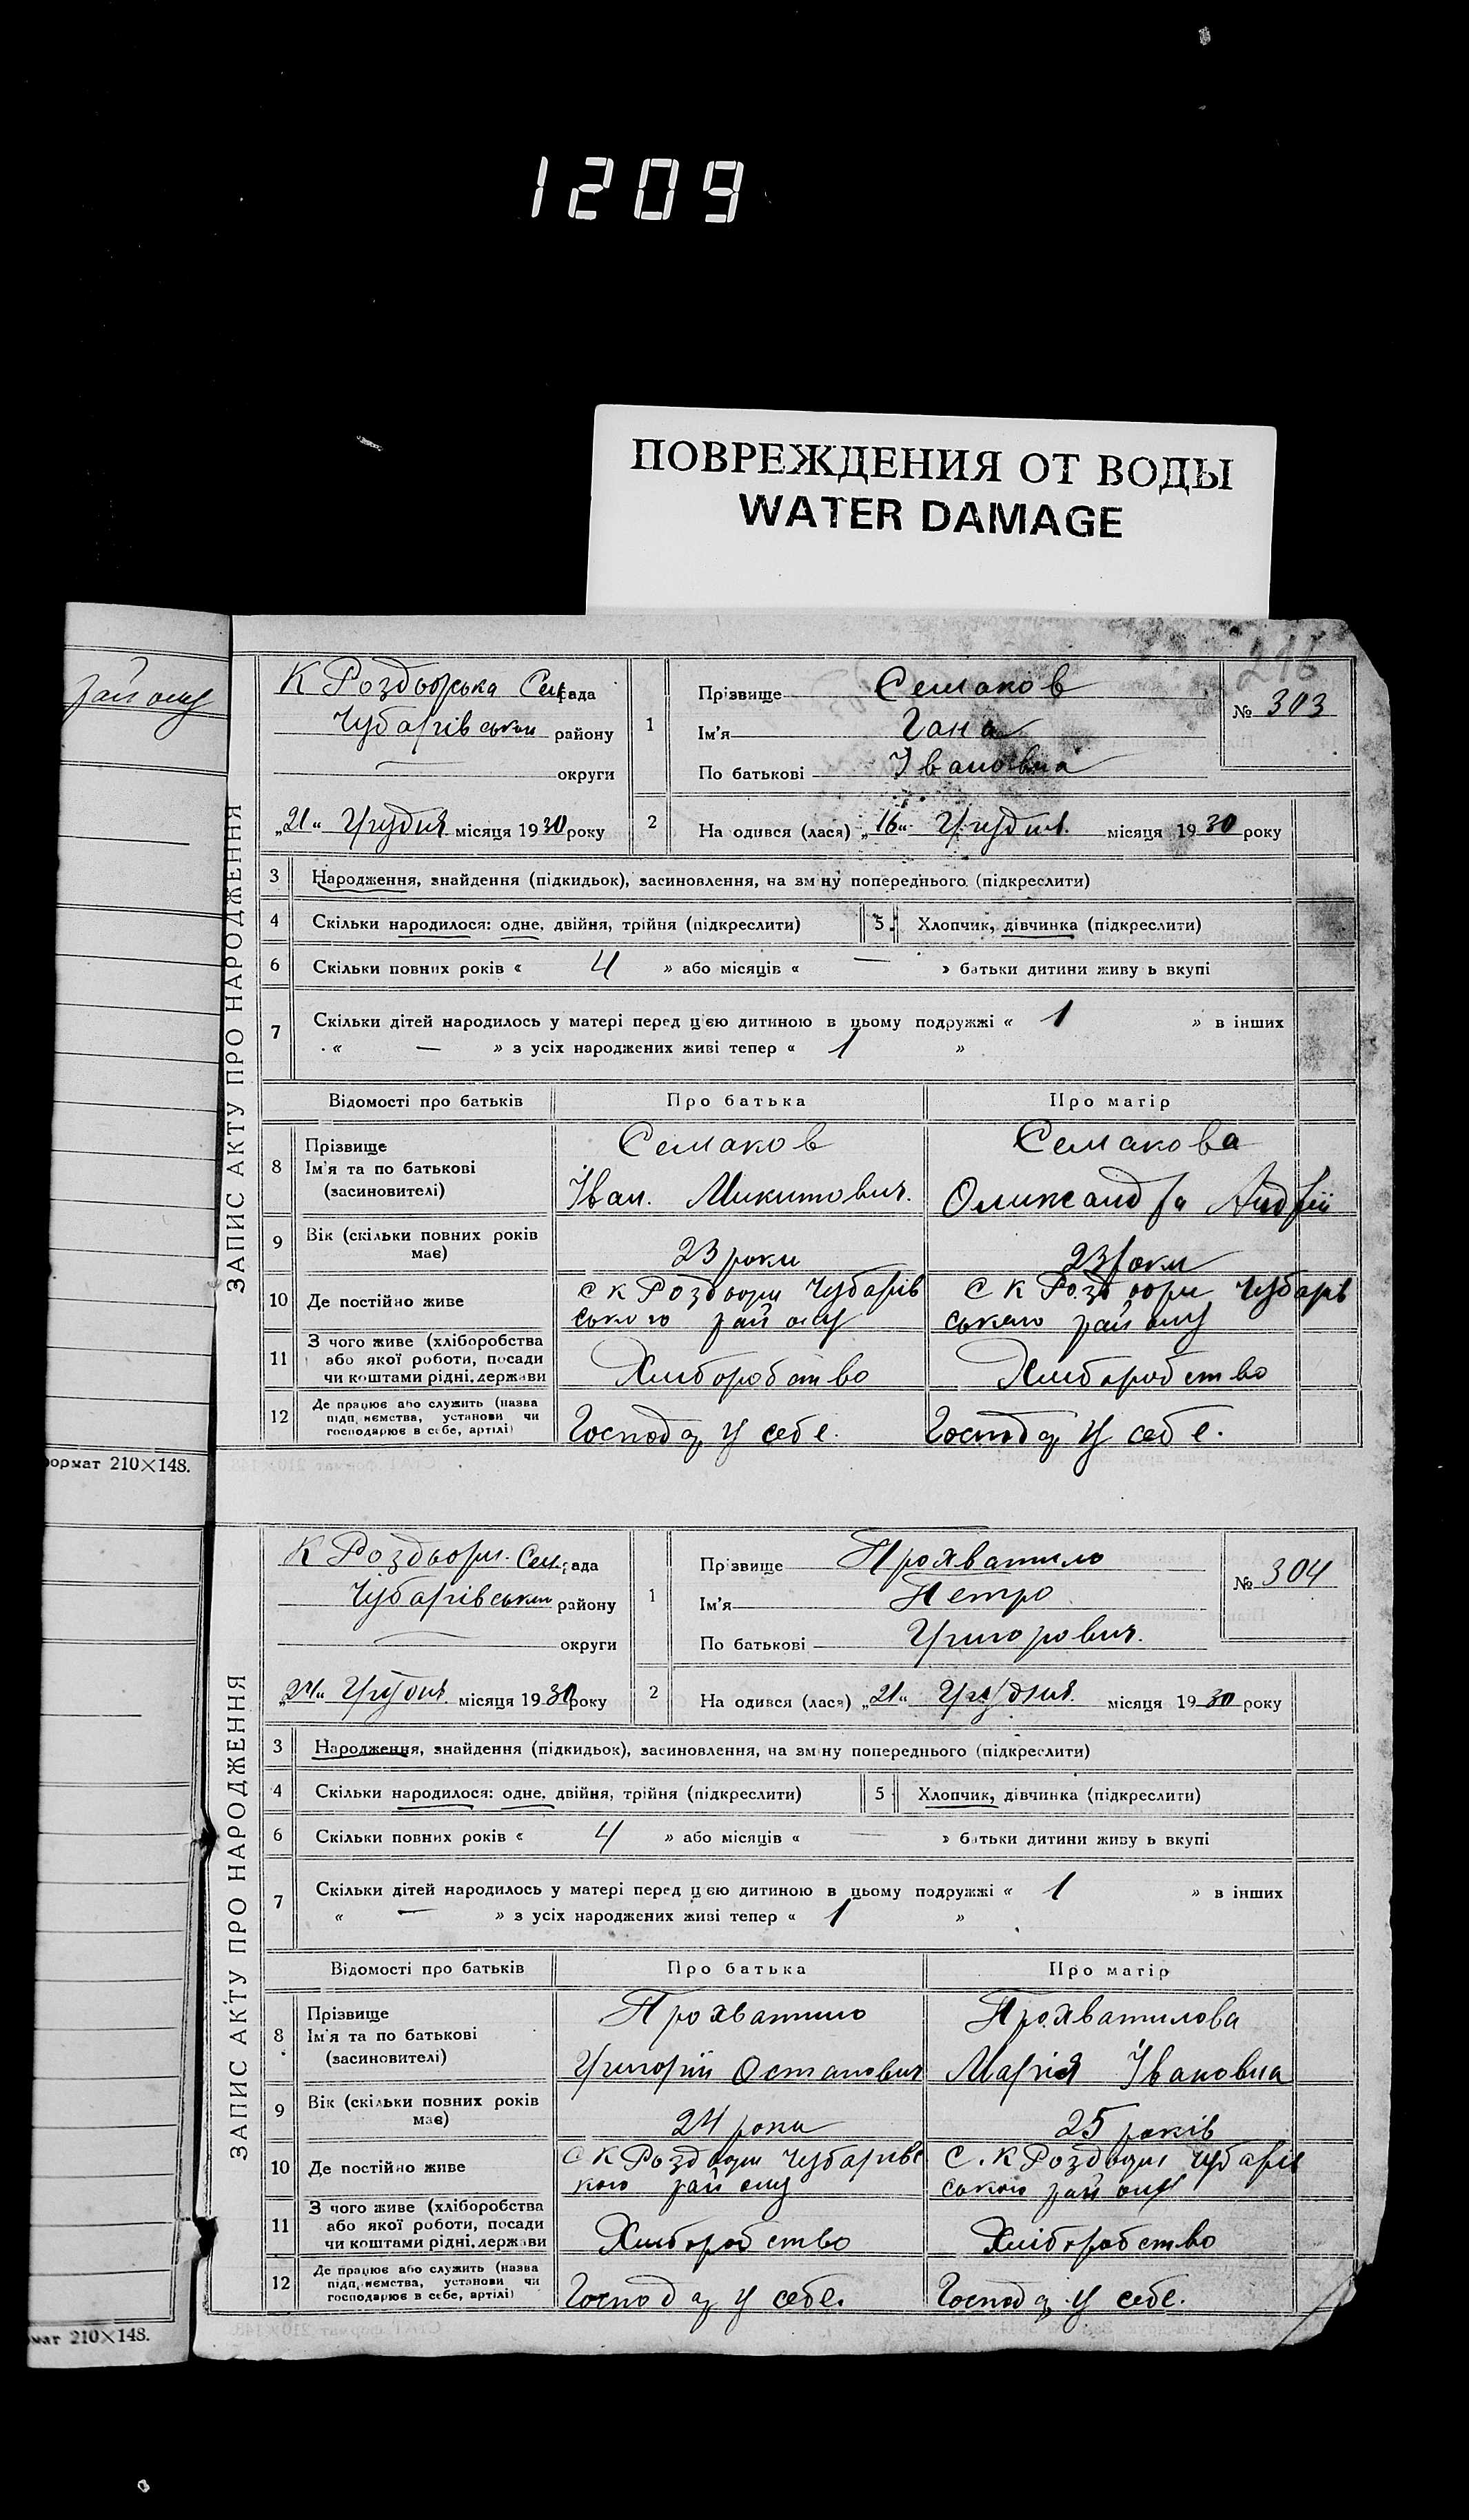 1209
ПОВРЕЖДЕНИЯ ОТ ВОДЫ
WATER DAMAGE
району
формат 210×148.
рмат 210×148.
216
ЗАПИС АКТУ ПРО НАРОДЖЕННЯ
К Роздорська Сельрада
Чубарівськи району
округи
„21“ Грудня місяця 1930 року
1 Прізвище Семаков
Ім'я Гана
По батькові Івановна
№ 303
2 На одився (лася) „16“ Грудня місяця 1930 року
3 Народження, знайдення (підкидьок), засиновлення, на зм ну попереднього (підкреслити)
4 Скільки народилося: одне, двійня, трійня (підкреслити) 5 Хлопчик, дівчинка (підкреслити)
6 Скільки повних років « 4 » або місяців « — » батьки дитини живу ь вкупі
7 Скільки дітей народилось у матері перед цією дитиною в цьому подружжі « 1 » в інших
« — » з усіх народжених живі тепер « 1 »
Відомості про батьків Про батька Про матір
8 Прізвище Семаков Семакова
Ім'я та по батькові
(засиновителі) Іван. Микитович. Олександра Андрій
9 Вік (скільки повних років має) 23 роки 23 роки
10 Де постійно живе с К Роздори Чубарів с К Роздори Чубарів
ського району ського району
11 З чого живе (хліборобства
або якої роботи, посади Хліборобство Хліборобство
чи коштами рідні, держави
12 Де працює або служить (назва
підп, ємства, установи чи Господ у себе. Господ у себе.
господарює в себе, артілі)
ЗАПИС АКТУ ПРО НАРОДЖЕННЯ
К Роздори. Сельрада
Чубарівськи району
округи
„24“ Грудня місяця 1930 року
1 Прізвище Прохватило
Ім'я Петро
По батькові Григорович.
№ 304
2 На одився (лася) „21“ Грудня місяця 1930 року
3 Народження, знайдення (підкидьок), засиновлення, на зм ну попереднього (підкреслити)
4 Скільки народилося: одне, двійня, трійня (підкреслити) 5 Хлопчик, дівчинка (підкреслити)
6 Скільки повних років « 4 » або місяців « — » батьки дитини живу ь вкупі
7 Скільки дітей народилось у матері перед цією дитиною в цьому подружжі « 1 » в інших
« — » з усіх народжених живі тепер « 1 »
Відомості про батьків Про батька Про матір
8 Прізвище Прохватило Прохватилова
Ім'я та по батькові
(засиновителі) Григорій Остапович Марія Івановна
9 Вік (скільки повних років має) 24 роки 25 років
10 Де постійно живе с К Роздори Чубарівс С. К Роздори Чубарів
кого району ського району
11 З чого живе (хліборобства
або якої роботи, посади Хліборобство Хліборобство
чи коштами рідні, держави
12 Де працює або служить (назва
підп, ємства, установи чи Господ у себе. Господ у себе.
господарює в себе, артілі)